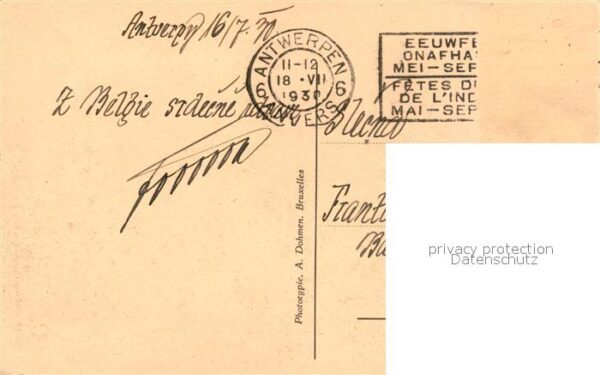 Antverpy 16/7.30
ANTWERPEN
11-12
18 · VII
1930
6 6
ANVERS
EEUWFE
ONAFHA
MEI-SEP
FÊTES D
DE L'IND
MAI-SEP
Z Belgie srdečné
Slečna
Phototypie. A. Dohmen, Bruxelles
privacy protection
Datenschutz